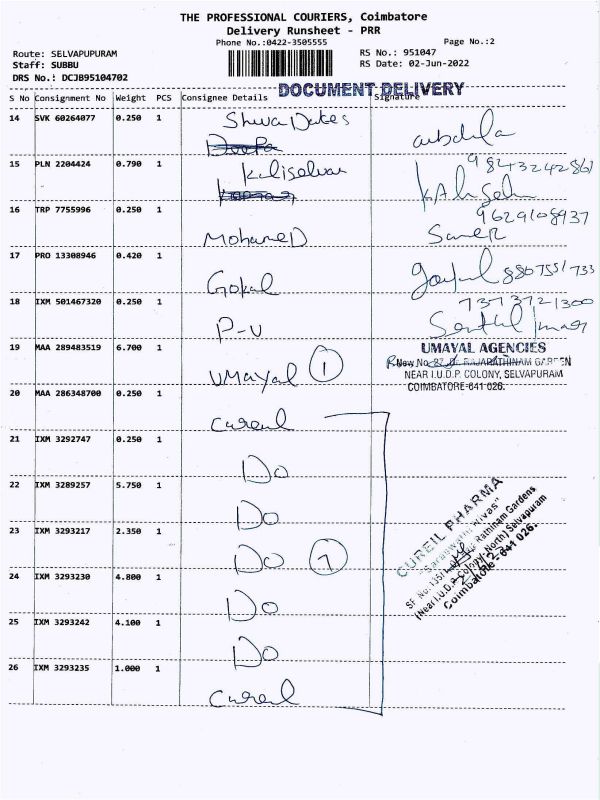 THE PROFESSIONAL COURIERS, Coimbatore
Delivery Runsheet - PRR
Phone No.:0422-3505555
Page No.:2
Route: SELVAPUPURAM
RS No.: 951047
Staff: SUBBU
RS Date: 02-Jun-2022
DRS No.: DCJB95104702
DOCUMENT DELIVERY
S No Consignment No Weight PCS Consignee Details Signature
14 SVK 60264077 0.250 1
15 PLN 2204424 0.790 1 Kaliselvan
16 TRP 7755996 0.250 1 Mohamed
9629108937
17 PRO 13308946 0.420 1 Gokal
7373721300
18 IXM 501467320 0.250 1 P-U
19 MAA 289483519 6.700 1 UMayal 1
UMAYAL AGENCIES
New No. 27, Dr. RAJARATHINAM GARDEN
NEAR I.U.D.P. COLONY, SELVAPURAM
COIMBATORE-641 026.
20 MAA 286348700 0.250 1 Cureil
21 IXM 3292747 0.250 1 Do
22 IXM 3289257 5.750 1 Do
23 IXM 3293217 2.350 1 Do 7
24 IXM 3293230 4.800 1 Do
25 IXM 3293242 4.100 1 Do
26 IXM 3293235 1.000 1 Cureil
CUREIL PHARMA
"Saraswathi Nivas"
SF. No. 135/1, Rathinam Gardens
(Near I.U.D.P. Colony, North) Selvapuram
Coimbatore - 641 026.